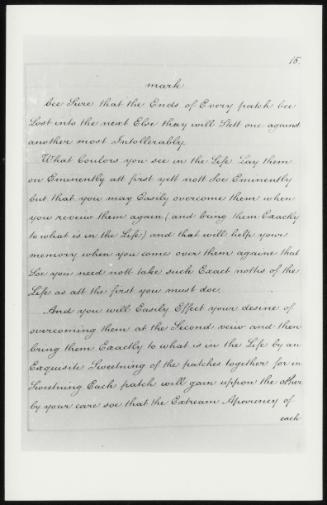 15.
mark
bee Sure that the Ends of Every patch bee
Lost into the next Else they will Sett one against
another most Intollerably
What Coulors you see in the Life Lay them
on Eminently att first yett nott soe Eminently
but that you may Easily overcome them when
you reveiw them again (and bring them Exactly
to what is in the Life) and that will help your
memory when you come over them againe that
Soe you need nott take such Exact nottis of the
Life as att the first you must doe.
And you will Easily Effect your desire of
overcoming them at the Second veiw and then
bring them Exactly to what is in the Life by an
Exquisite Sweetning of the patches together for in
Sweetning Each patch will gain uppon the other
by your care soe that the Extream Aparency of
each